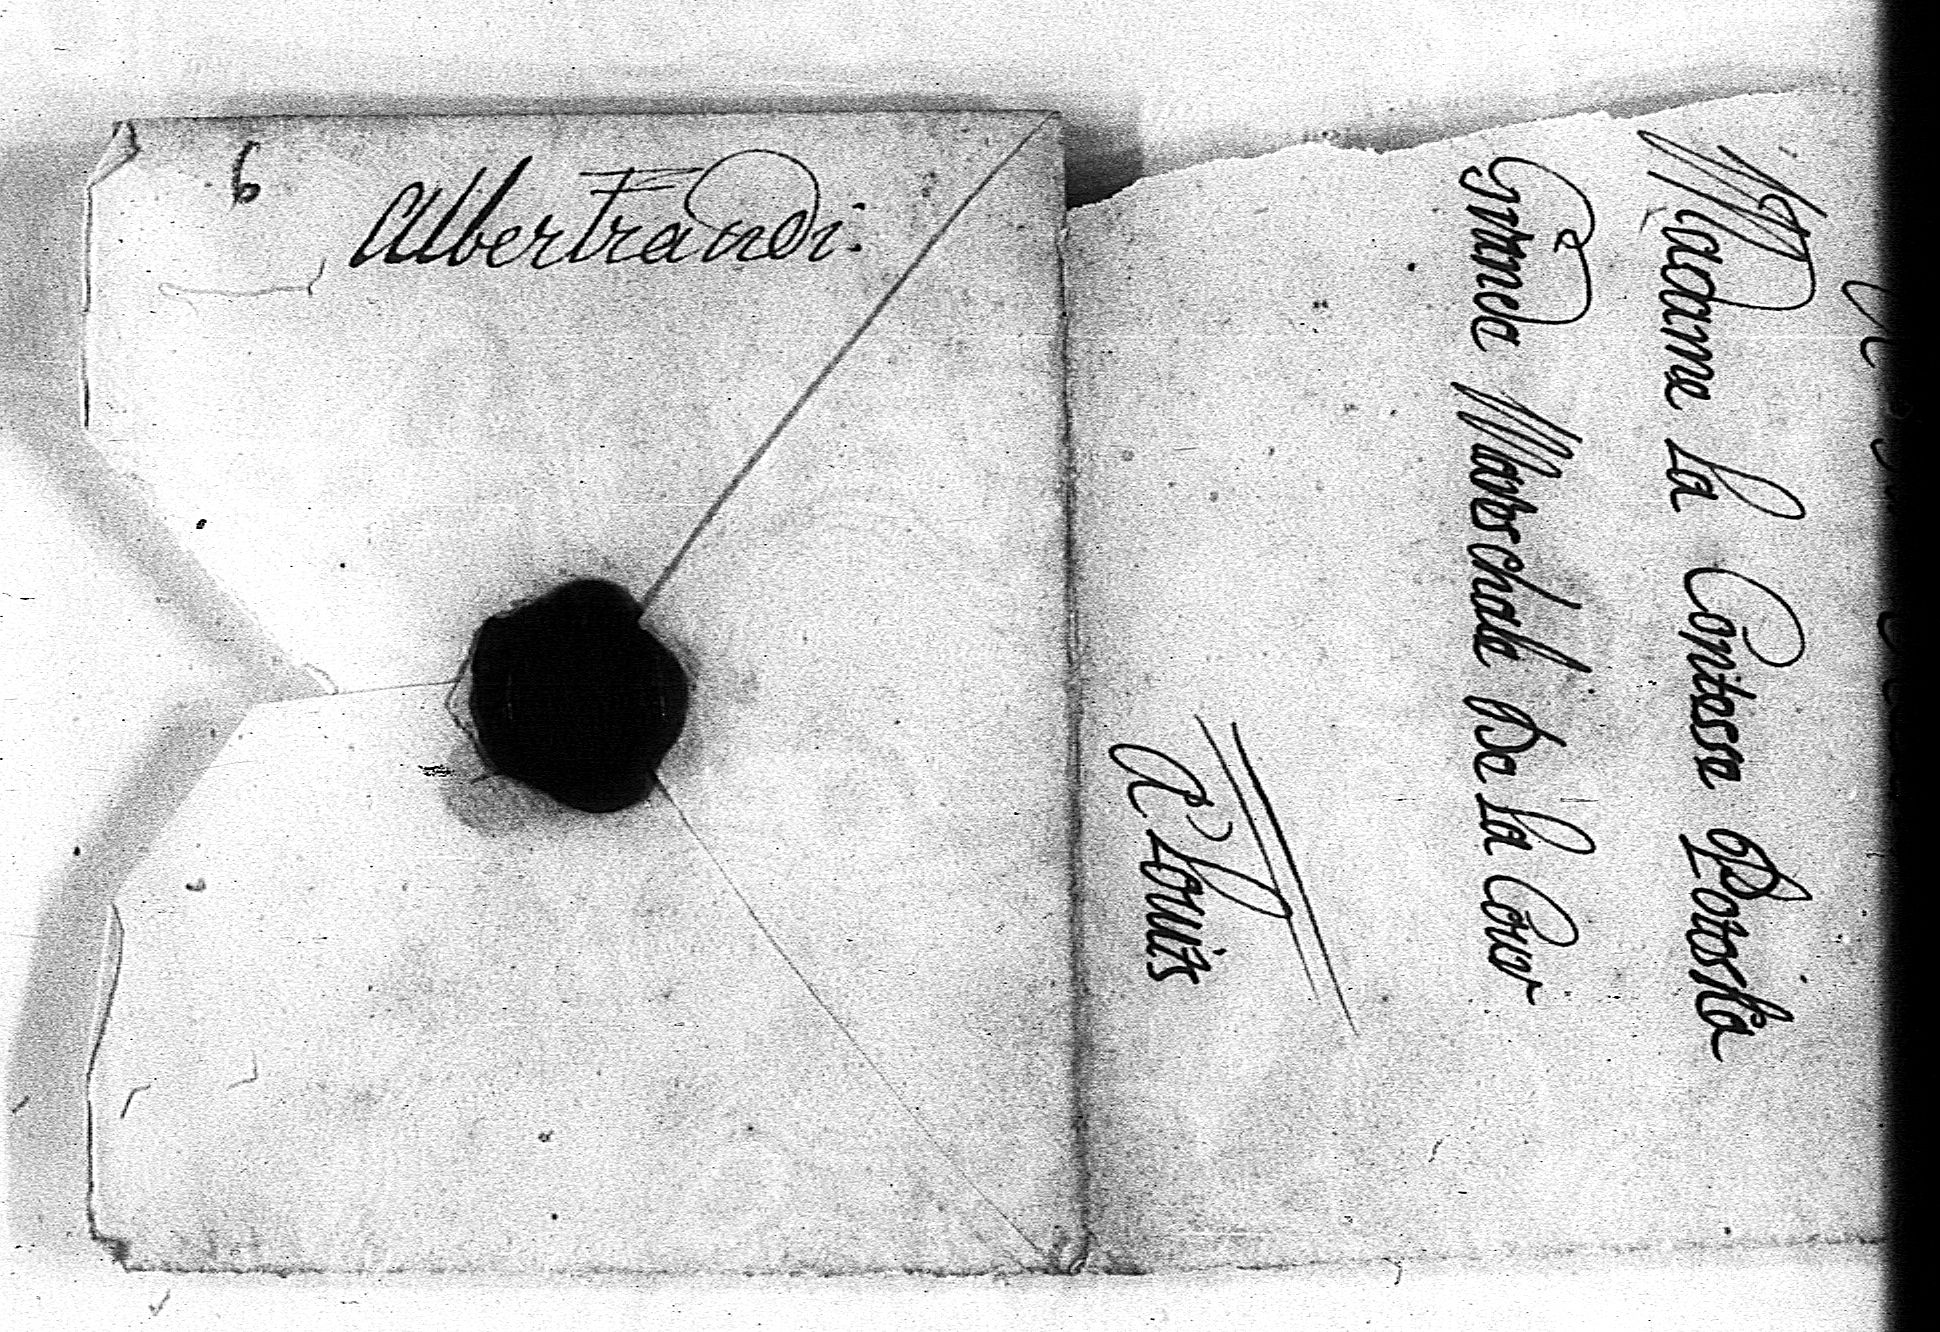 6
Albertrandi.
A
Madame La Contesse Potoska
Grande Mareschale De La Cour
a Louits